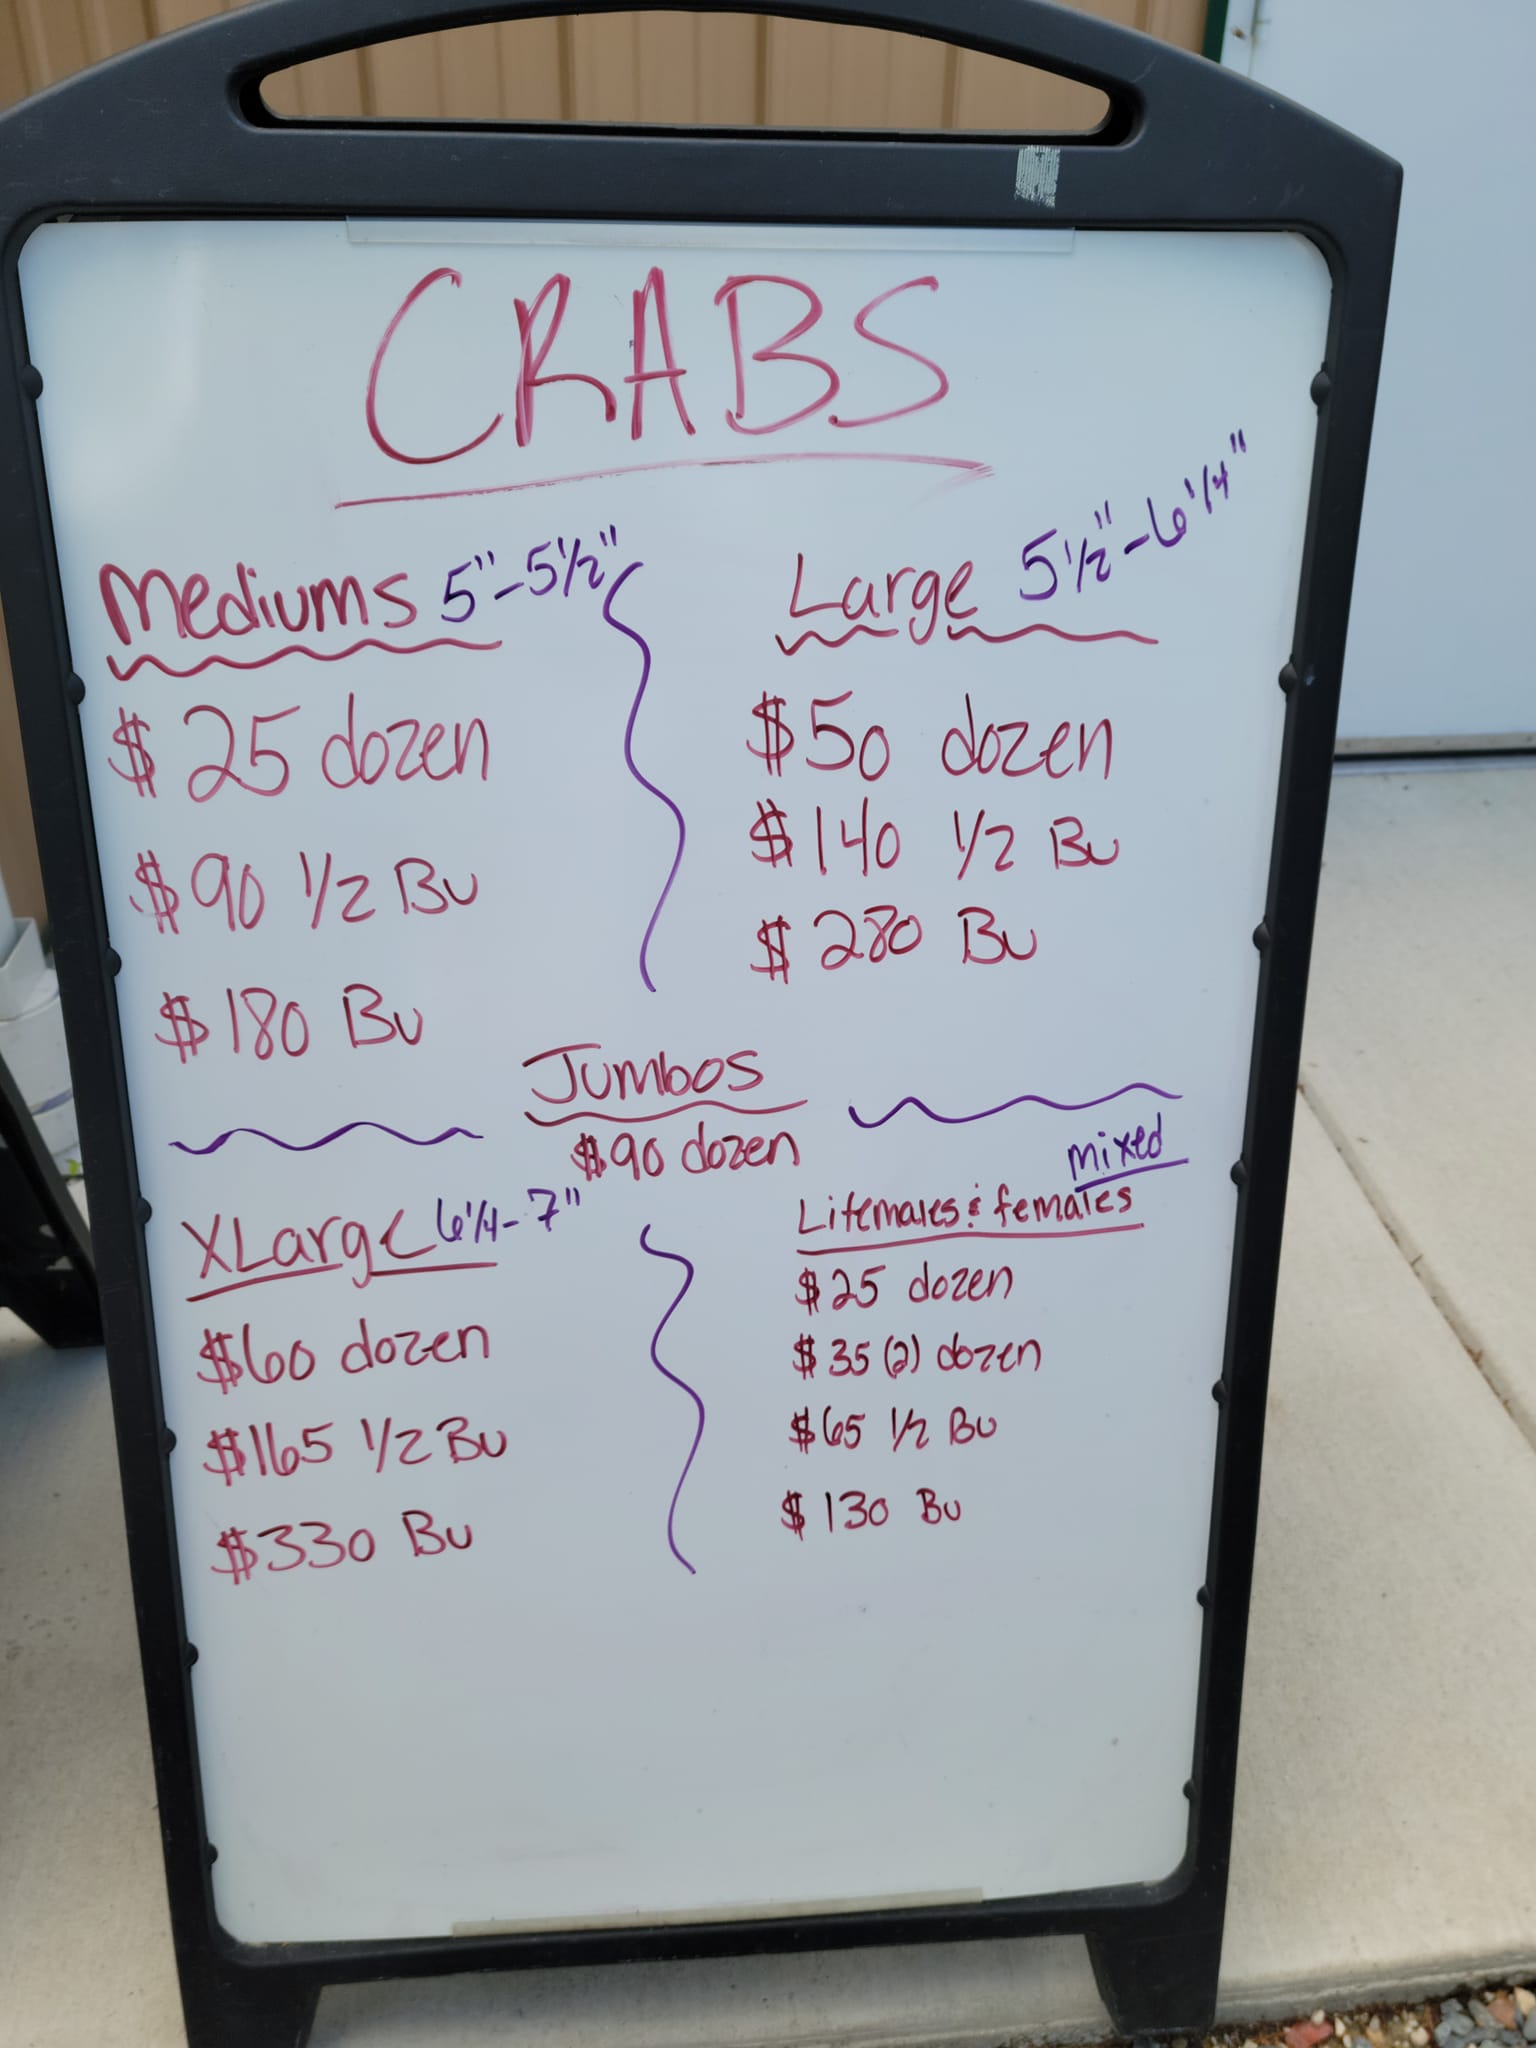 CRABS
Mediums 5"-5 1/2"
$25 dozen
$90 1/2 Bu
$180 Bu
Large 5 1/2"-6 1/4"
$50 dozen
$140 1/2 Bu
$280 Bu
Jumbos
$90 dozen
XLarge 6 1/4-7"
$60 dozen
$165 1/2 Bu
$330 Bu
mixed
Litemales & females
$25 dozen
$35 (2) dozen
$65 1/2 Bu
$130 Bu